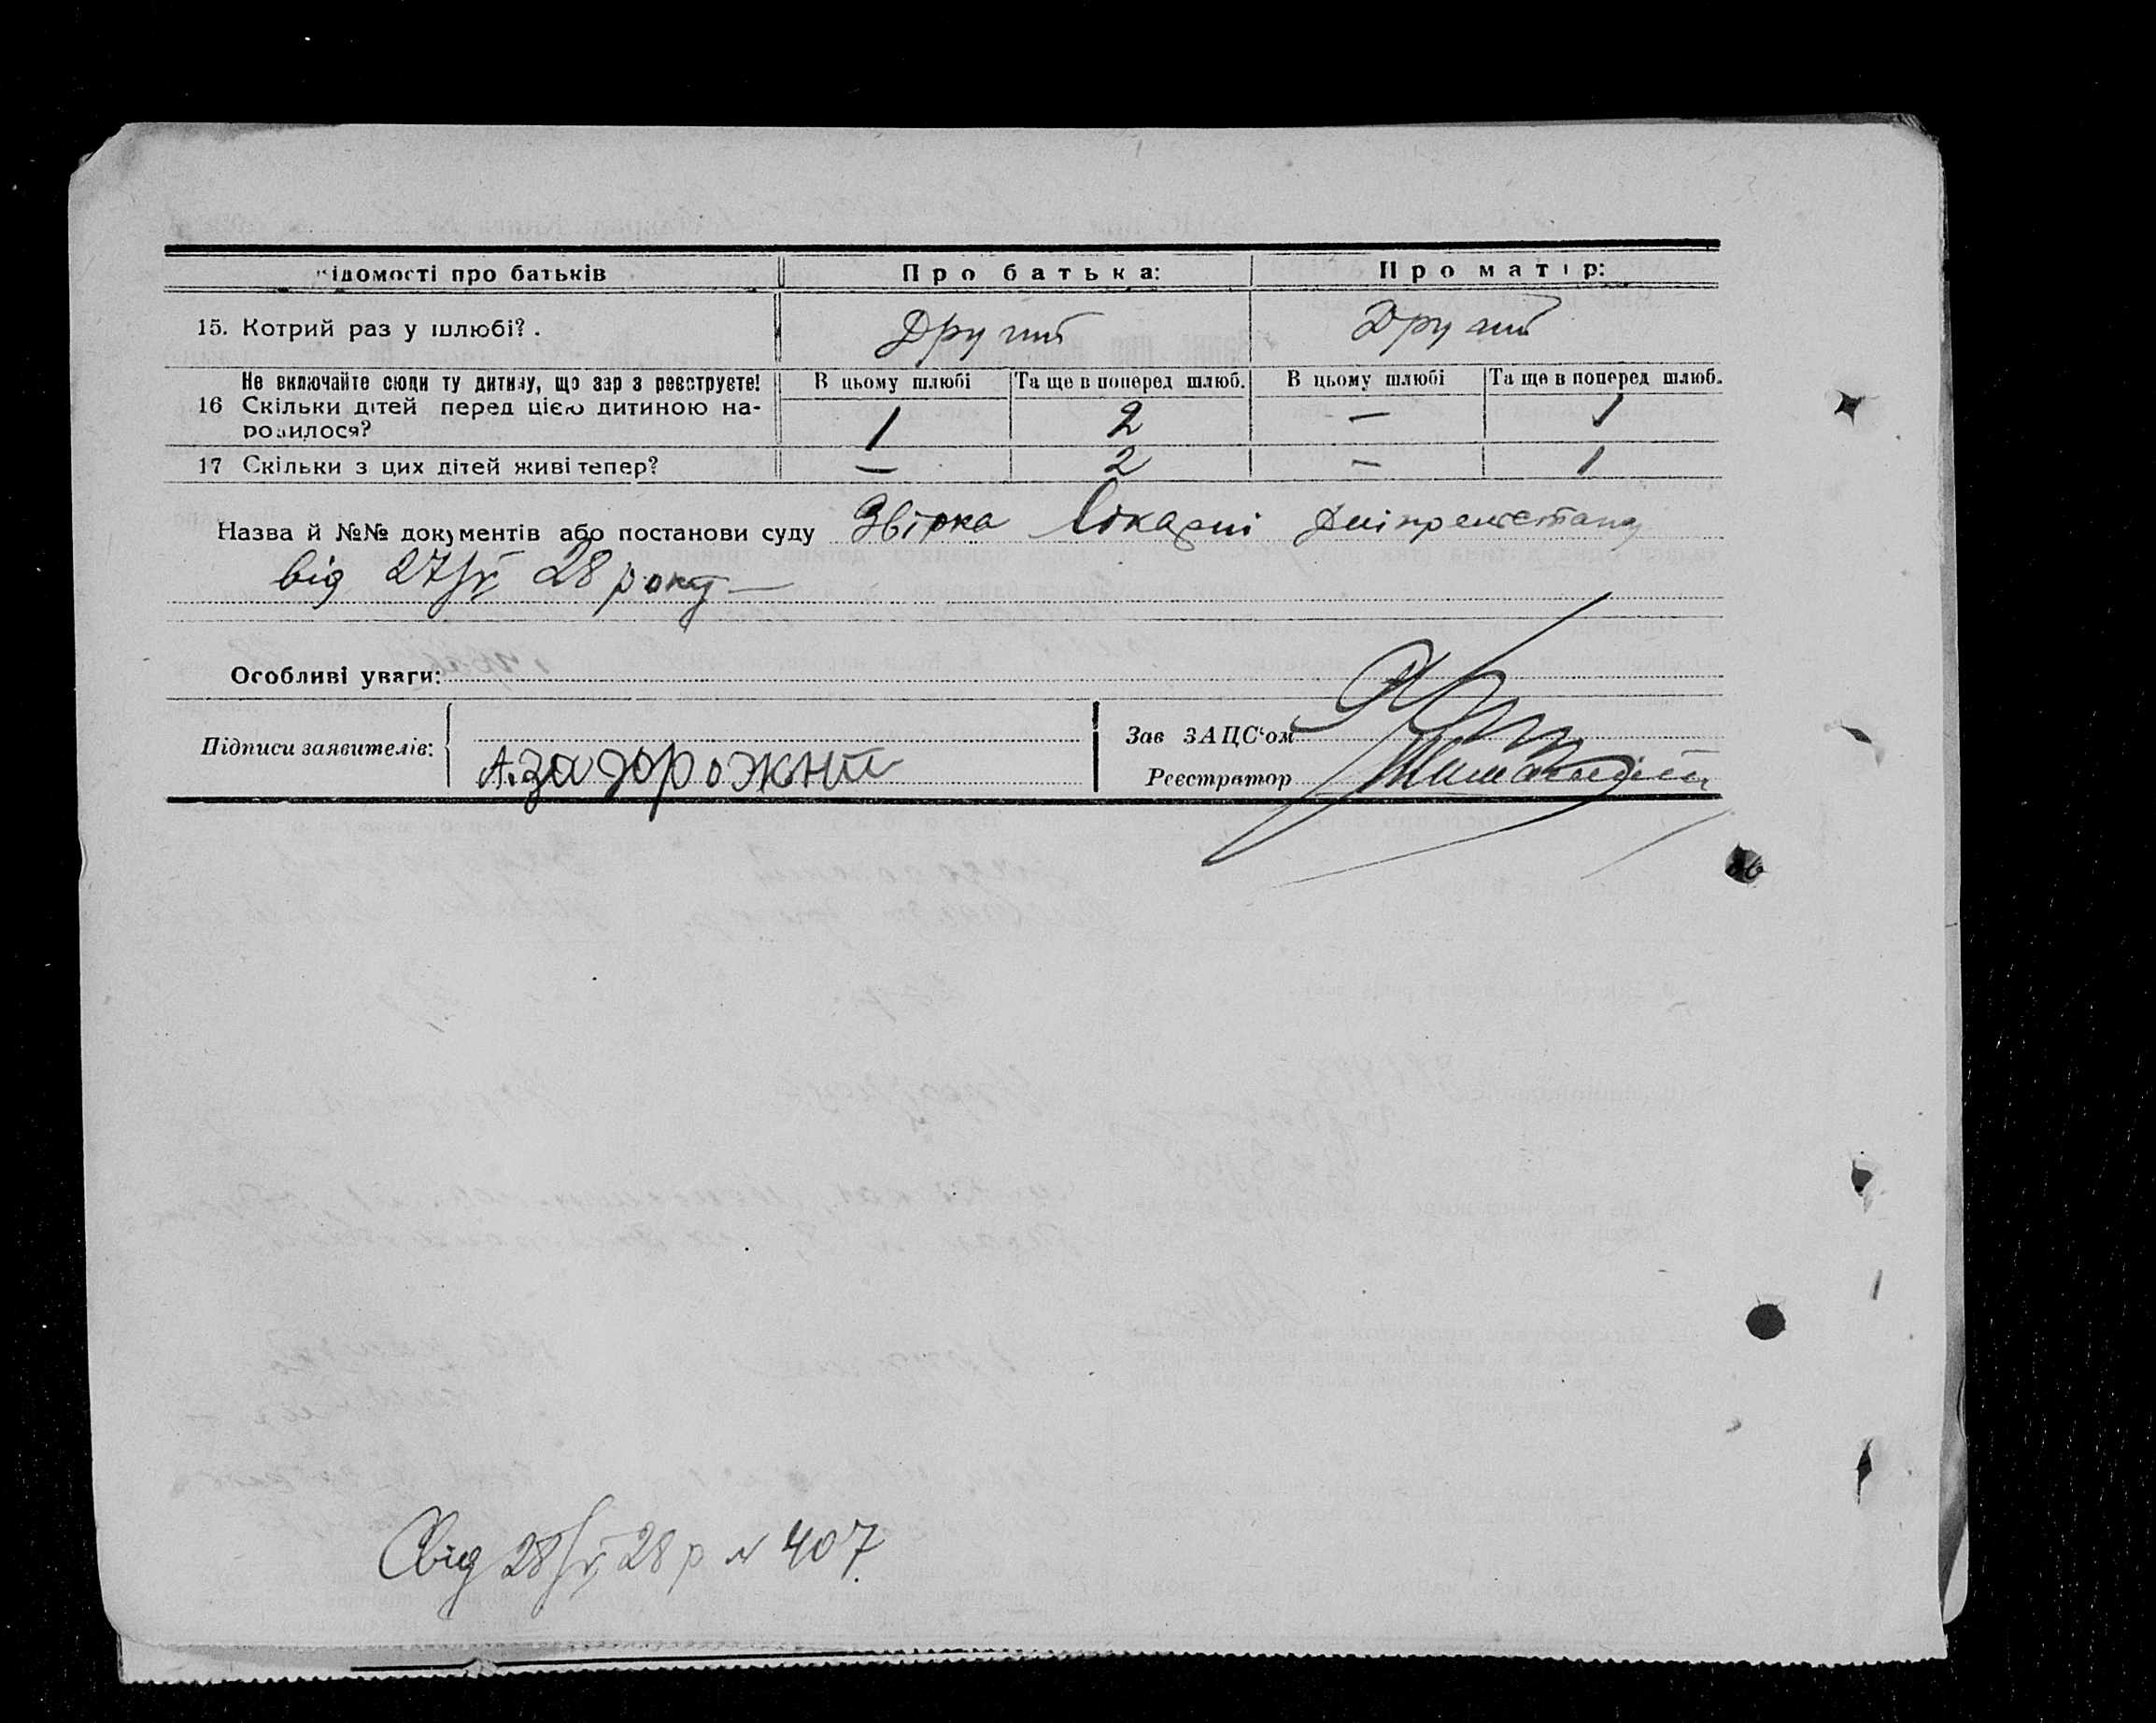 ідомості про батьків | Про батька: | Про матір:
15. Котрий раз у шлюбі? . | Другий | Другий
Не включайте сюди ту дитину, що зар з реєструєте! | В цьому шлюбі | Та ще в поперед шлюб. | В цьому шлюбі | Та ще в поперед шлюб.
16 Скільки дітей перед цією дитиною на- | 1 | 2 | — | 1
родилося?
17 Скільки з цих дітей живі тепер? | — | 2 | — | 1
Назва й №№ документів або постанови суду Звірка Лікарні
від 27/V 28 року —
Особливі уваги:
Підписи заявителів:
А. Задорожній
Зав ЗАЦС‘ом
Реєстратор
Свід 28/V 28 р № 407.